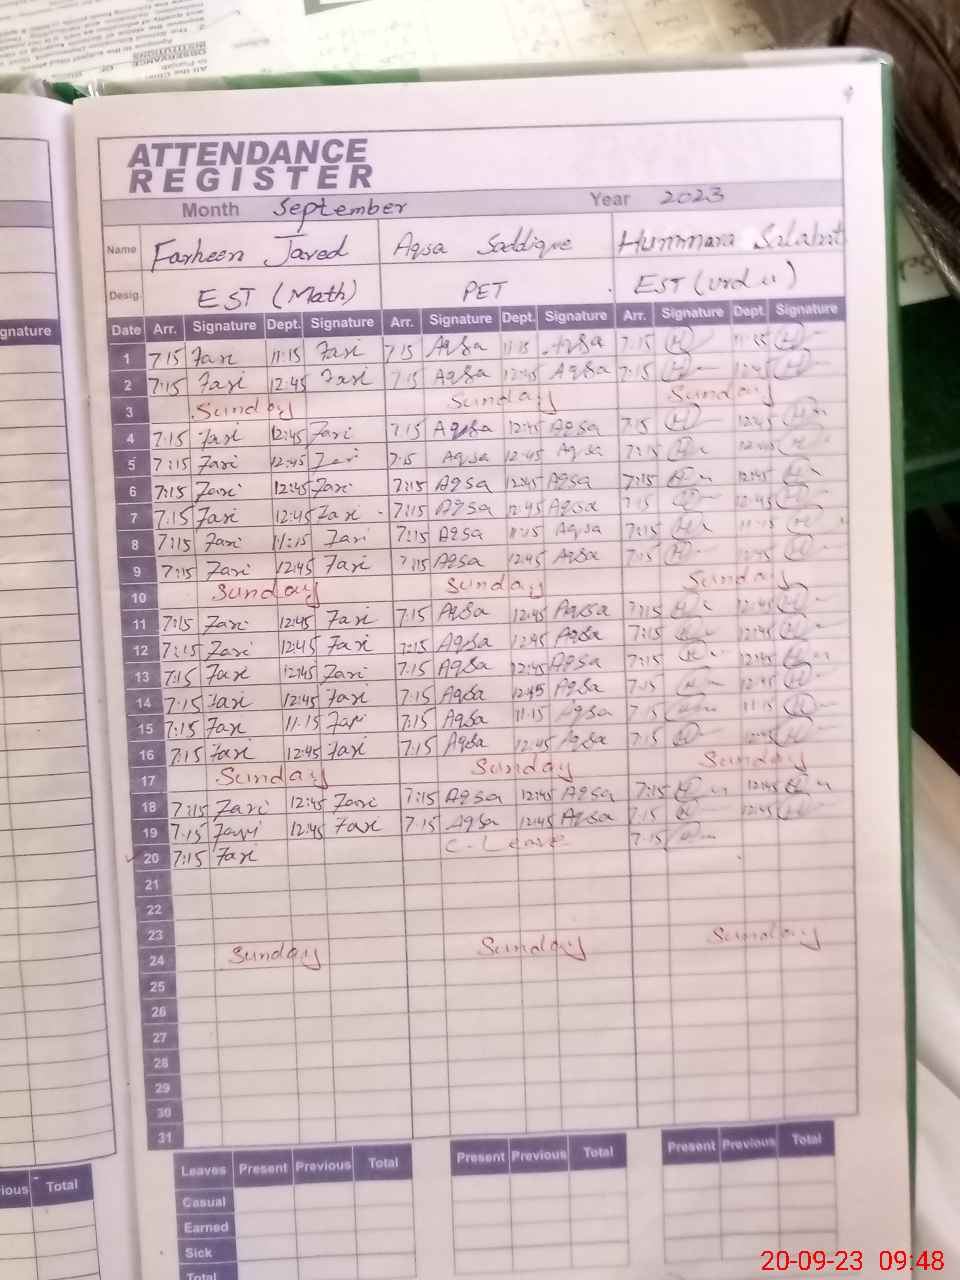 ATTENDANCE
REGISTER
Month September Year 2023
Name Farheen Javed Aqsa Saddique Hummara
Desig. EST (Math) PET EST (Urdu)
gnature Date Arr. Signature Dept. Signature Arr. Signature Dept. Signature Arr. Signature Dept. Signature
1 7:15 Fari 11:15 Fari 7:15 Aqsa 11:15 Aqsa 7:15 H H
2 7:15 Fari 12:45 Fari 7:15 Aqsa 12:45 Aqsa 7:15 H 12:45 H
3 Sunday Sunday Sunday
4 7:15 Fari 12:45 Fari 7:15 Aqsa 12:45 Aqsa 7:15 H 12:45 H
5 7:15 Fari 12:45 Fari 7:15 Aqsa 12:45 Aqsa 7:15 H 12:45 H
6 7:15 Fari 12:45 Fari 7:15 Aqsa 12:45 Aqsa 7:15 H 12:45 H
7 7:15 Fari 12:45 Fari 7:15 Aqsa 12:45 Aqsa 7:15 H 12:45 H
8 7:15 Fari 11:15 Fari 7:15 Aqsa 11:15 Aqsa 7:15 H 11:15 H
9 7:15 Fari 12:45 Fari 7:15 Aqsa 12:45 Aqsa 7:15 H 12:45 H
10 Sunday Sunday Sunday
11 7:15 Fari 12:45 Fari 7:15 Aqsa 12:45 Aqsa 7:15 H 12:45 H
12 7:15 Fari 12:45 Fari 7:15 Aqsa 12:45 Aqsa 7:15 H 12:45 H
13 7:15 Fari 12:45 Fari 7:15 Aqsa 12:45 Aqsa 7:15 H 12:45 H
14 7:15 Fari 12:45 Fari 7:15 Aqsa 12:45 Aqsa 7:15 H 12:45 H
15 7:15 Fari 11:15 Fari 7:15 Aqsa 11:15 Aqsa 7:15 H 11:15 H
16 7:15 Fari 12:45 Fari 7:15 Aqsa 12:45 Aqsa 7:15 H 12:45 H
17 Sunday Sunday Sunday
18 7:15 Fari 12:45 Fari 7:15 Aqsa 12:45 Aqsa 7:15 H 12:45 H
19 7:15 Fari 12:45 Fari 7:15 Aqsa 12:45 Aqsa 7:15 H 12:45 H
20 7:15 Fari C-Leave 7:15 H
21
22
23
24 Sunday Sunday Sunday
25
26
27
28
29
30
31
Leaves Present Previous Total Present Previous Total Present Previous Total
ious Total
Casual
Earned
Sick
Total
20-09-23 09:48